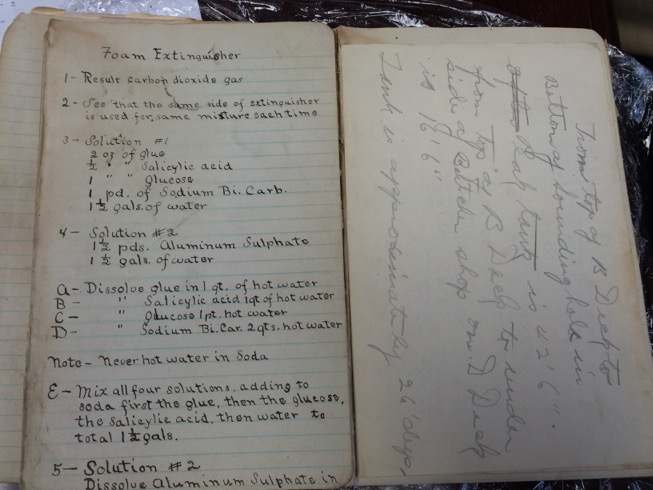 Foam Extinguisher
1- Result carbon dioxide gas
2- See that the same side of extinguisher
is used for same mixture each time
3- Solution #1
2 oz of glue
½ " " Salicylic acid
1 " " Glucose
1 pd. of Sodium Bi. Carb.
1½ gals. of water
4- Solution #2
1½ pds. Aluminum Sulphate
1½ gals. of water
A- Dissolve glue in 1 qt. of hot water
B- " Salicylic acid 1 qt of hot water
C- " Glucose 1 pt. hot water
D- " Sodium Bi. Car. 2 qts. hot water
Note- Never hot water in Soda
E- Mix all four solutions, adding to
soda first the glue, then the glucose,
the salicylic acid, then water to
total 1½ gals.
5- Solution #2
Dissolve Aluminum Sulphate in
From top of B Deck to
Bottom of sounding hole in
Peak tank is 42'6".
from top of B Deck to under
side a Butcher shop on D Deck
is 16'6"
Tank is approximately 26' deep.